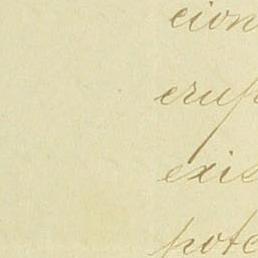 cion
erup
exis
pote